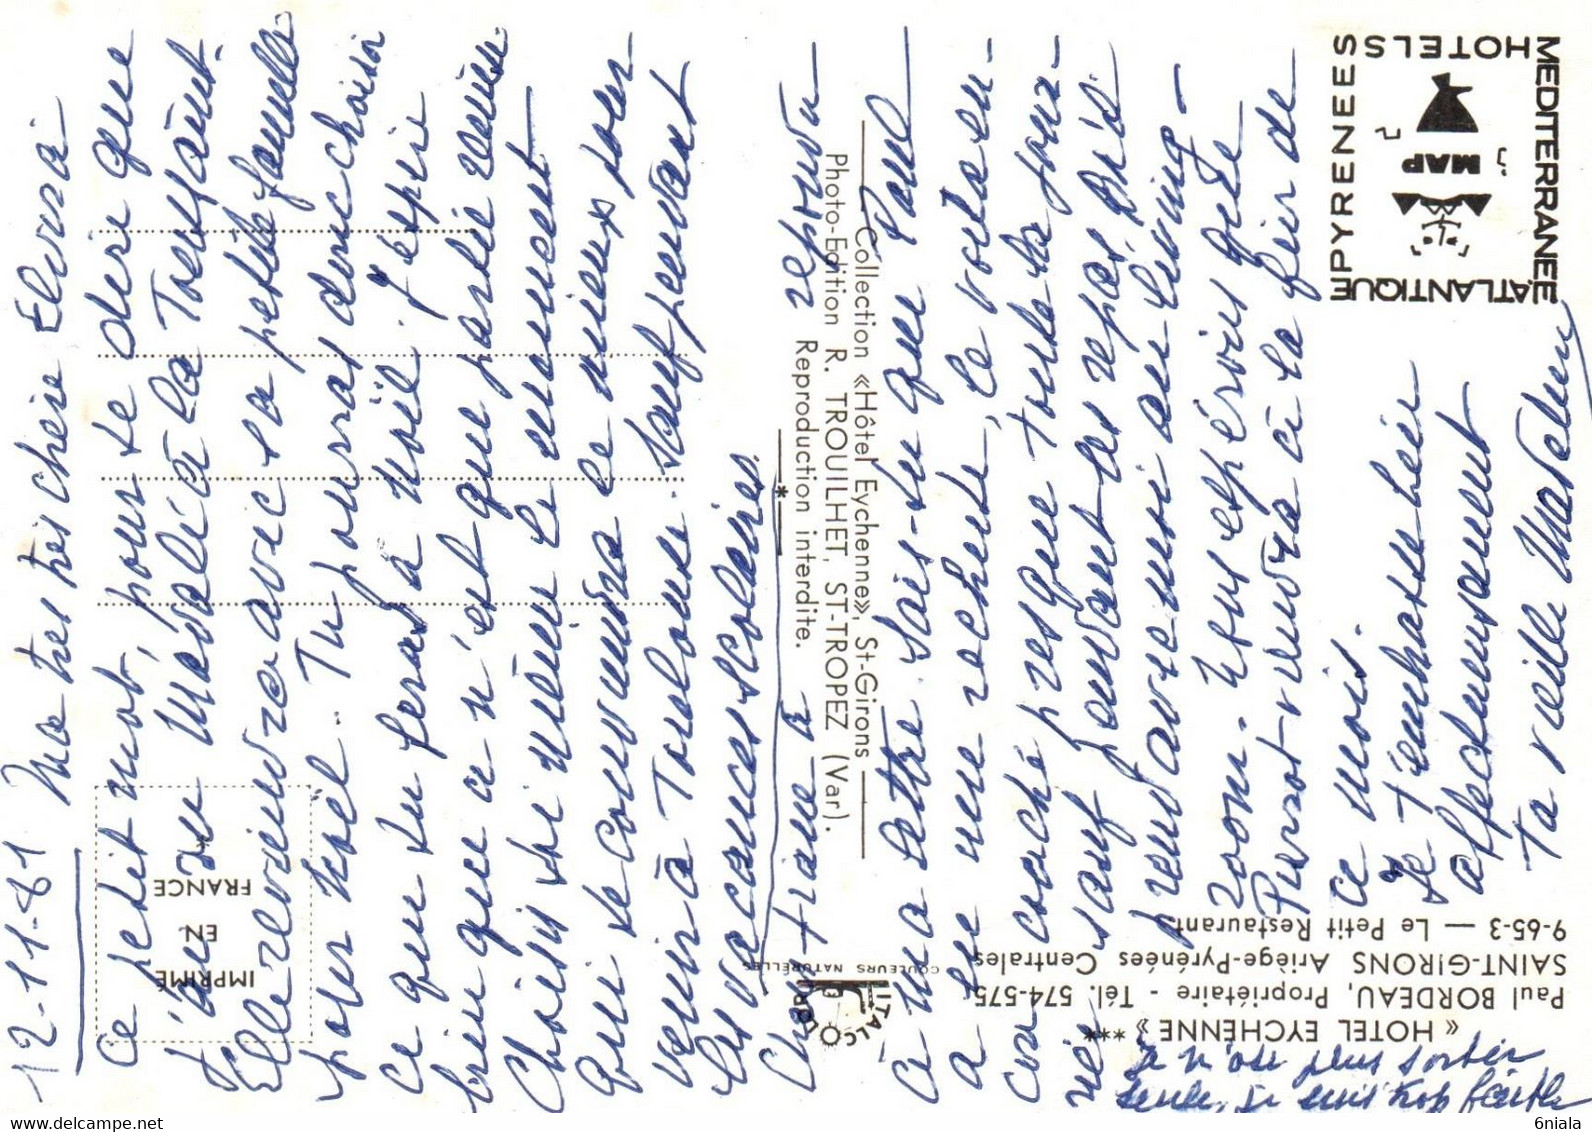 12-11-81 Ma très chère Elvira
Ce petit mot, pour te dire que
j'ai vu Magali à la Toussaint.
Elle reviendra avec sa petite famille
pour Noël. Tu pourras donc choisir
ce que tu feras à Noël. J'espère
bien que ce n'est que partie remise
Choisis toi même le moment
qui te conviendra le mieux pour
venir à Toulouse. Sauf pendant
les vacances scolaires.
Christiane a répondu
à ma lettre. Sais-tu que Paul
a eue une rechute, le voilà en-
core couché presque toute la jour-
née sauf pendant les repas qu'il
prend avec moi au living-
room. Nous espérons que le
Pierrot viendra à la fin de
ce mois.
Je t'embrasse bien
affectueusement
Ta vieille
Je n'ose plus sortir
seule, je suis trop faible
IMPRIMÉ
EN
FRANCE
Collection «Hôtel Eychenne», St-Girons
Photo-Edition R. TROUILHET, ST-TROPEZ (Var).
Reproduction interdite.
ITALCOLOR
COULEURS NATURELLES
« HOTEL EYCHENNE » ***
Paul BORDEAU, Propriétaire - Tél. 574-575
SAINT-GIRONS Ariège-Pyrénées Centrales
9-65-3 — Le Petit Restaurant
MEDITERRANEE
ATLANTIQUE
PYRENEES
HOTELS
MAP
www.delcampe.net
6niala